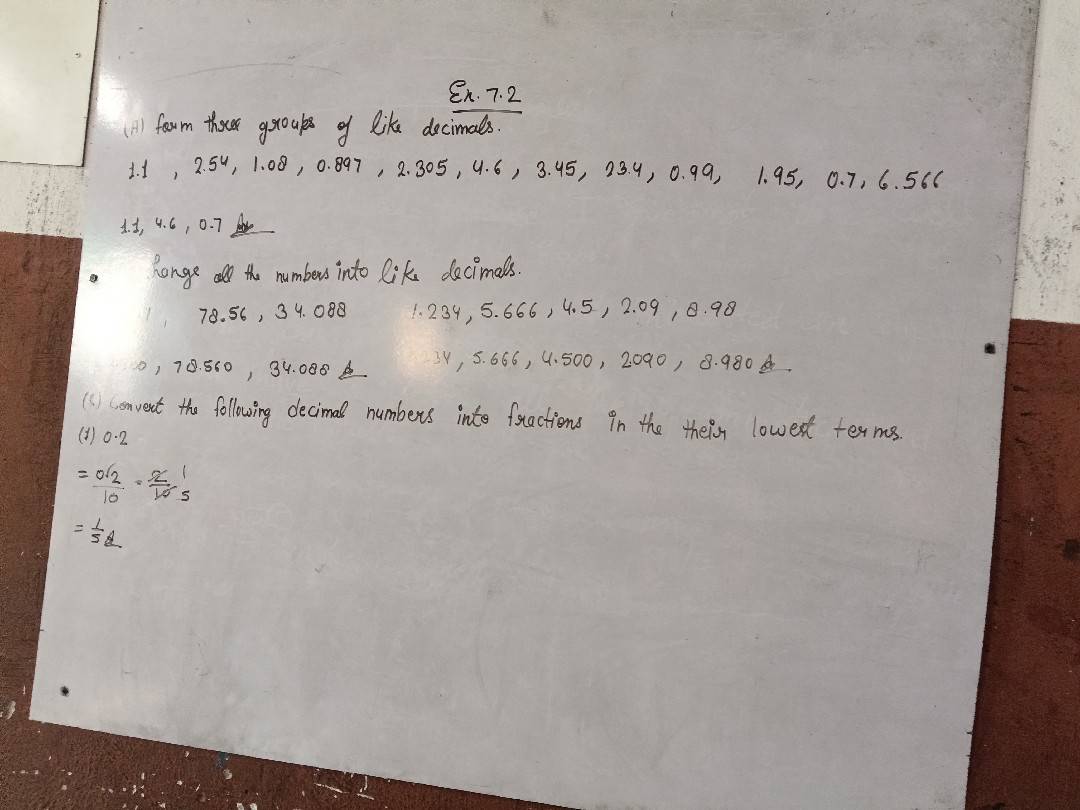 Ex. 7.2
(A) form three groups of like decimals.
1.1 , 2.54, 1.08, 0.897 , 2.305, 4.6, 3.45, 23.4, 0.99, 1.95, 0.7, 6.566
1.1, 4.6, 0.7 Ans
hange all the numbers into like decimals.
78.56, 34.088 1.234, 5.666, 4.5, 2.09, 8.98
78.560, 34.088 234, 5.666, 4.500, 2090, 8.980
Convert the following decimal numbers into fractions in the their lowest terms.
(1) 0.2
= 02/10 = 2/10 1/5
= 1/5